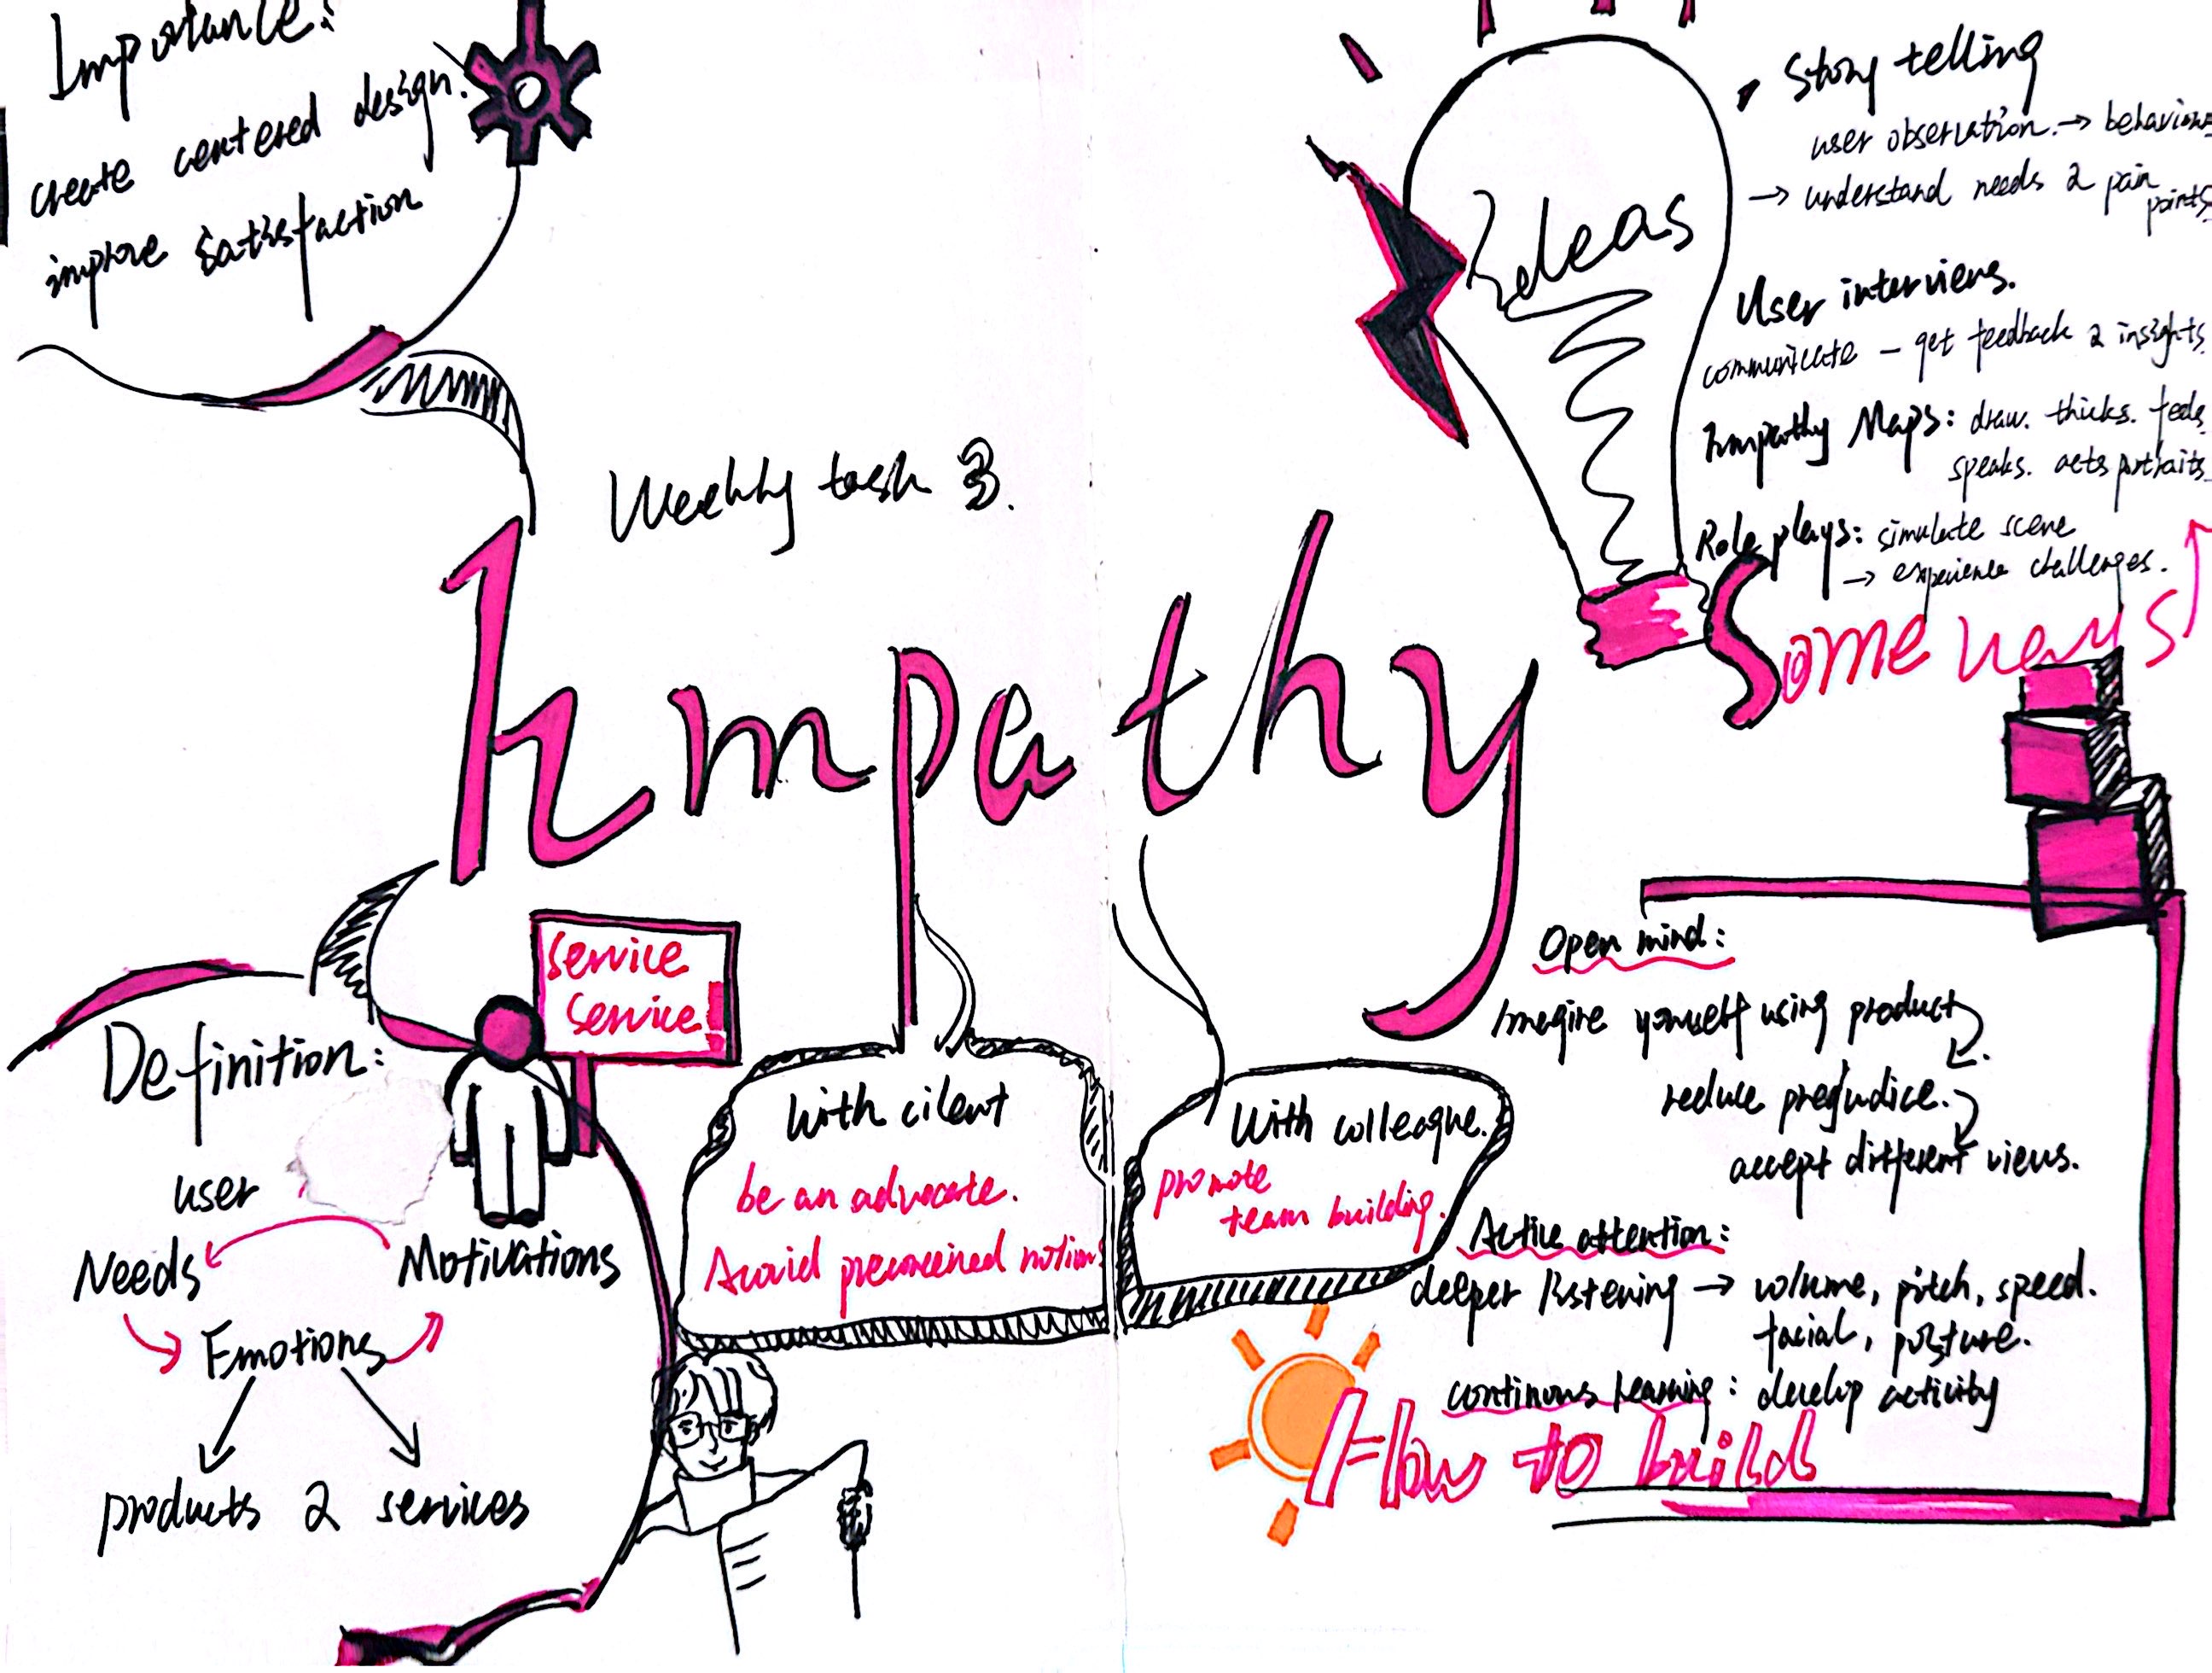 Importance:
create centered design.
improve satisfaction
Weekly task 3.
Empathy
Ideas
Story telling
user observation. → behaviors
→ understand needs & pain
points.
User interviews.
communicate - get feedback & insights.
Empathy Maps: draw. thicks. feels.
speaks. acts portraits.
Role plays: simulate scene
→ experience challenges.
Some ways
Definition:
user
Needs
Motivations
Emotions
products & services
service
service
With cilent
be an advocate.
Avoid preconceived notions
With colleague.
promote
team building.
Open mind:
Imagine yourself using product
reduce prejudice.
accept different views.
Active attention:
deeper listening → volume, pitch, speed.
facial, posture.
continous learning: develop activity
How to build